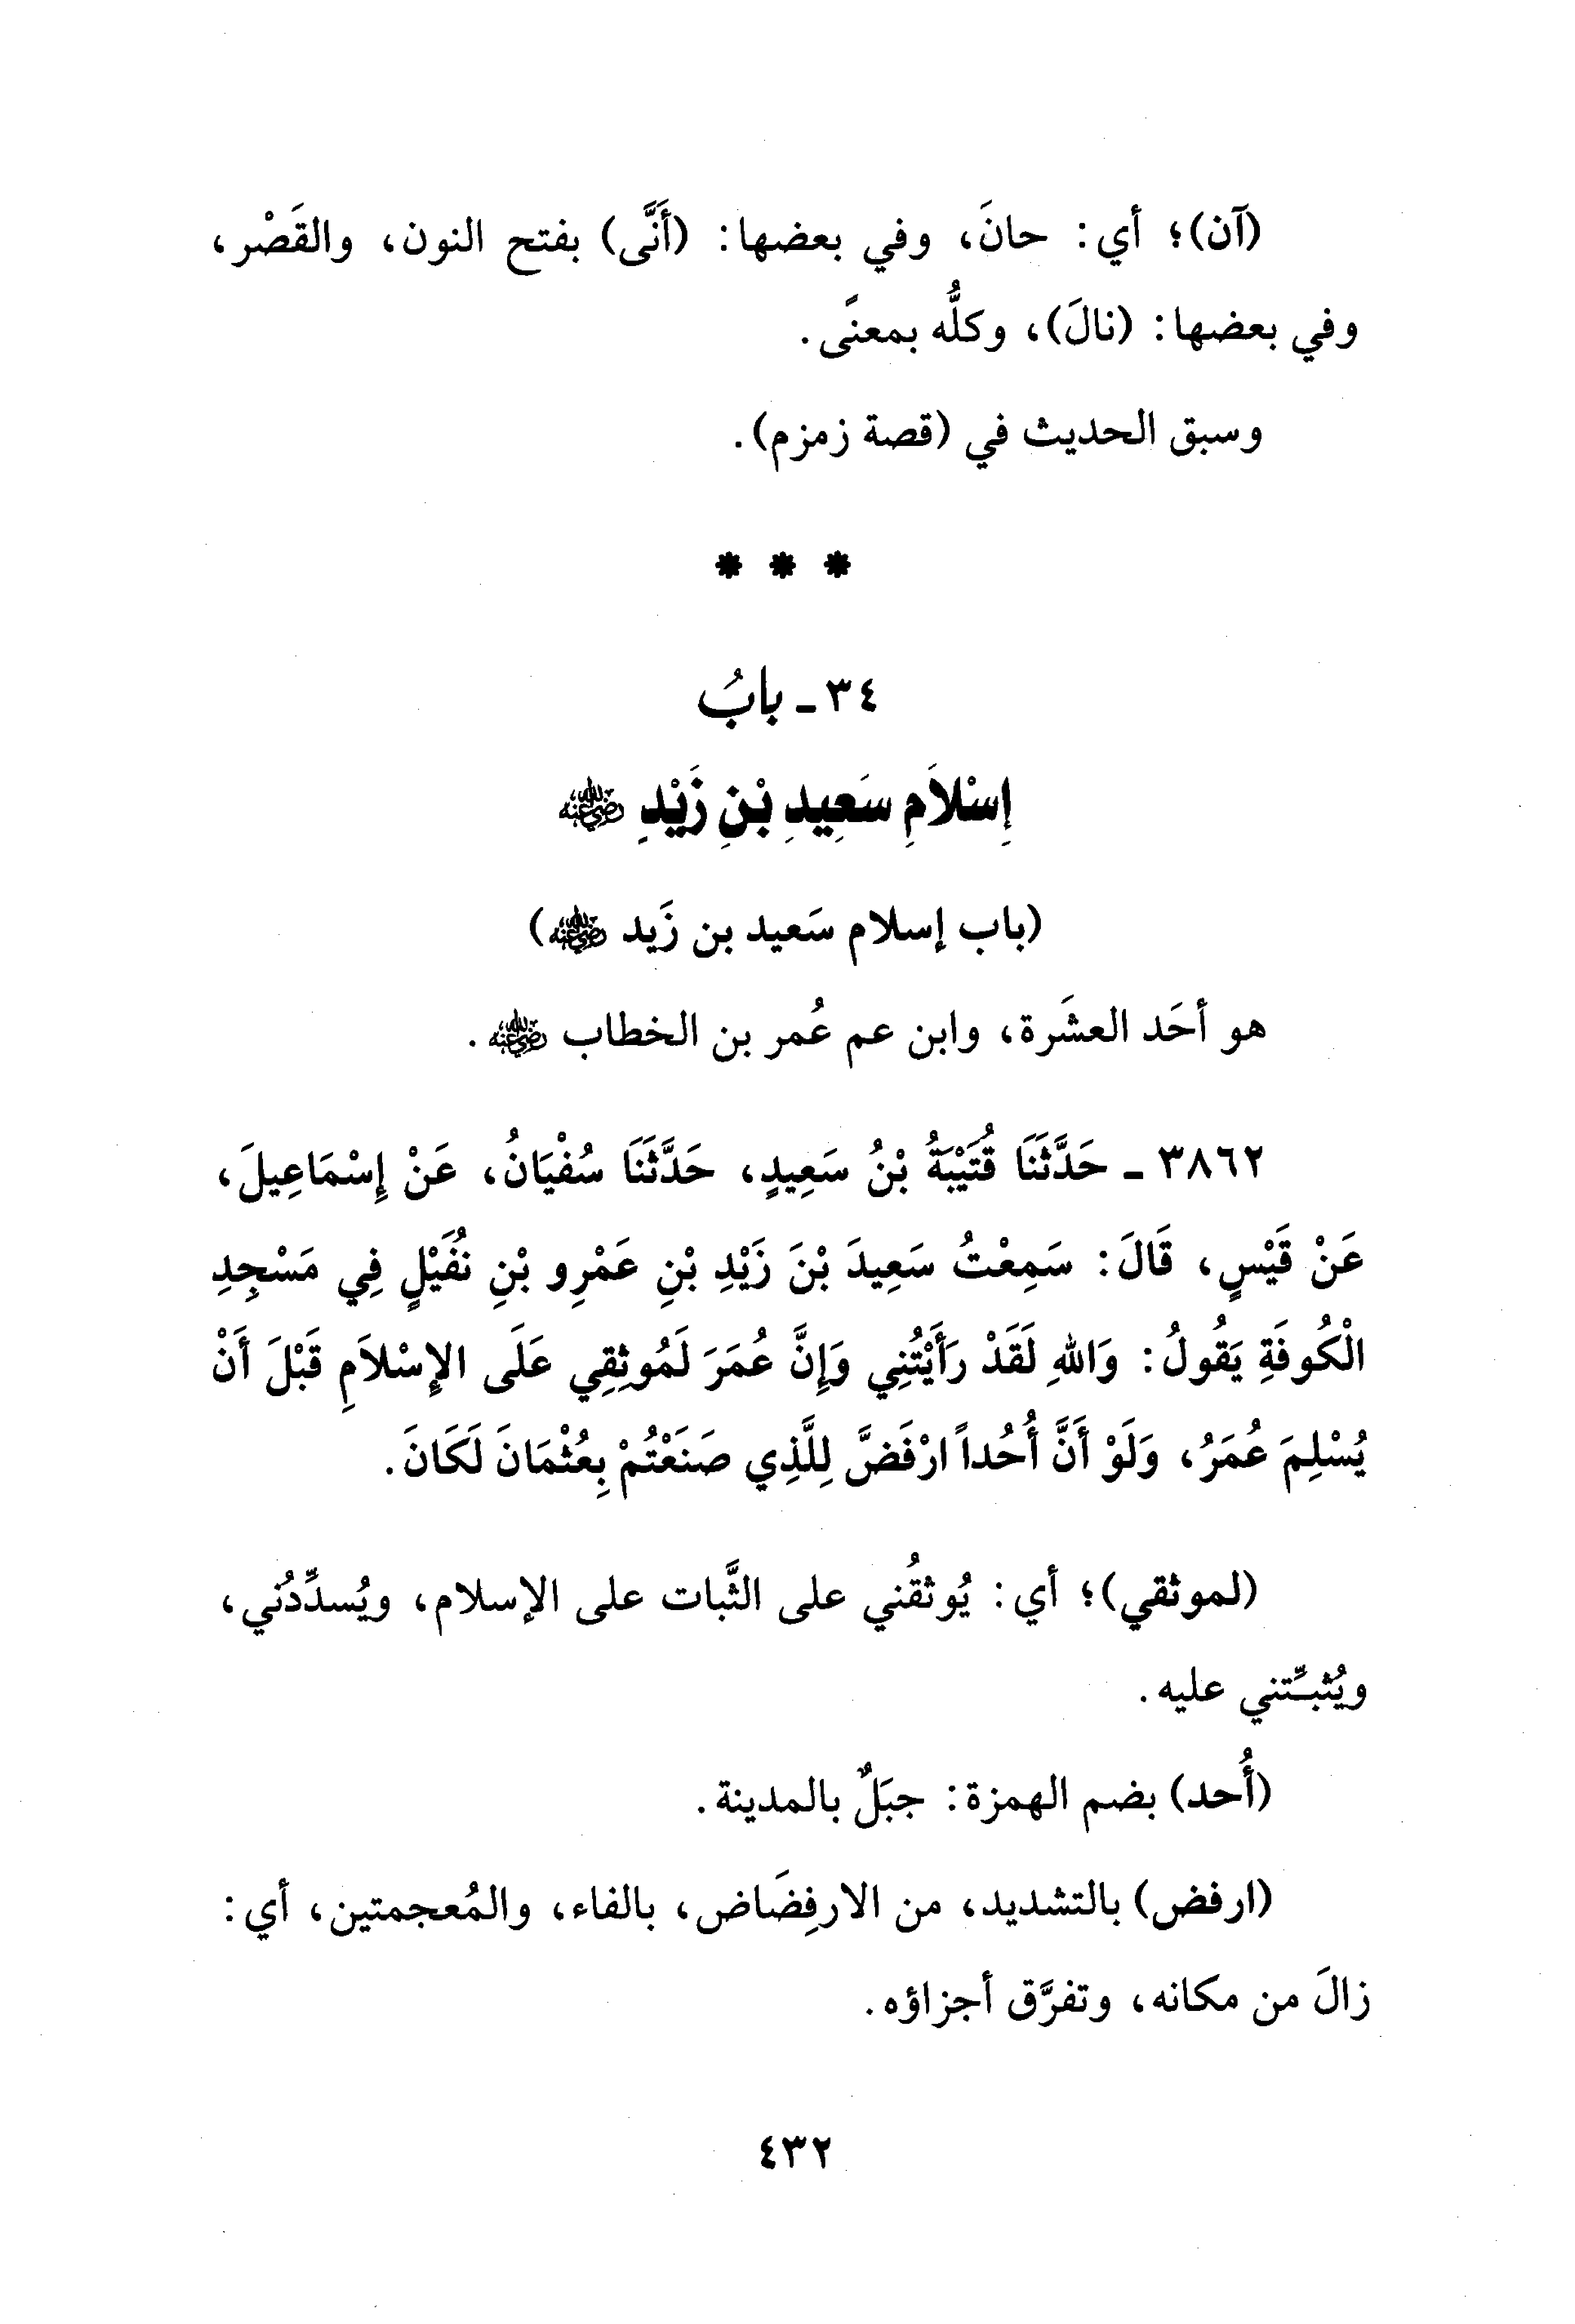 (آن)؛ أي: حانَ، وفي بعضها: (أَنَّى) بفتح النون، والقَصْر،
وفي بعضها: (نالَ)، وكلُّه بمعنًى.
وسبق الحديث في (قصة زمزم).
* * *
٣٤ - بابُ
إِسْلاَمِ سَعِيدِ بْنِ زَيْدٍ رضي الله عنه
(باب إسلام سَعيد بن زَيد رضي الله عنه)
هو أحَد العشَرة، وابن عم عُمر بن الخطاب رضي الله عنه.
٣٨٦٢ - حَدَّثَنَا قُتَيْبَةُ بْنُ سَعِيدٍ، حَدَّثَنَا سُفْيَانُ، عَنْ إِسْمَاعِيلَ،
عَنْ قَيْسٍ، قَالَ: سَمِعْتُ سَعِيدَ بْنَ زَيْدِ بْنِ عَمْرِو بْنِ نُفَيْلٍ فِي مَسْجِدِ
الْكُوفَةِ يَقُولُ: وَاللهِ لَقَدْ رَأَيْتُنِي وَإِنَّ عُمَرَ لَمُوثِقِي عَلَى الإِسْلاَمِ قَبْلَ أَنْ
يُسْلِمَ عُمَرُ، وَلَوْ أَنَّ أُحُداً ارْفَضَّ لِلَّذِي صَنَعْتُمْ بِعُثْمَانَ لَكَانَ.
(لموثقي)؛ أي: يُوثقُني على الثَّبات على الإسلام، ويُسدِّدُني،
ويُثبِّتني عليه.
(أُحد) بضم الهمزة: جبَلٌ بالمدينة.
(ارفض) بالتشديد، من الارفِضَاض، بالفاء، والمُعجمتين، أي:
زالَ من مكانه، وتفرَّق أجزاؤه.
٤٣٢